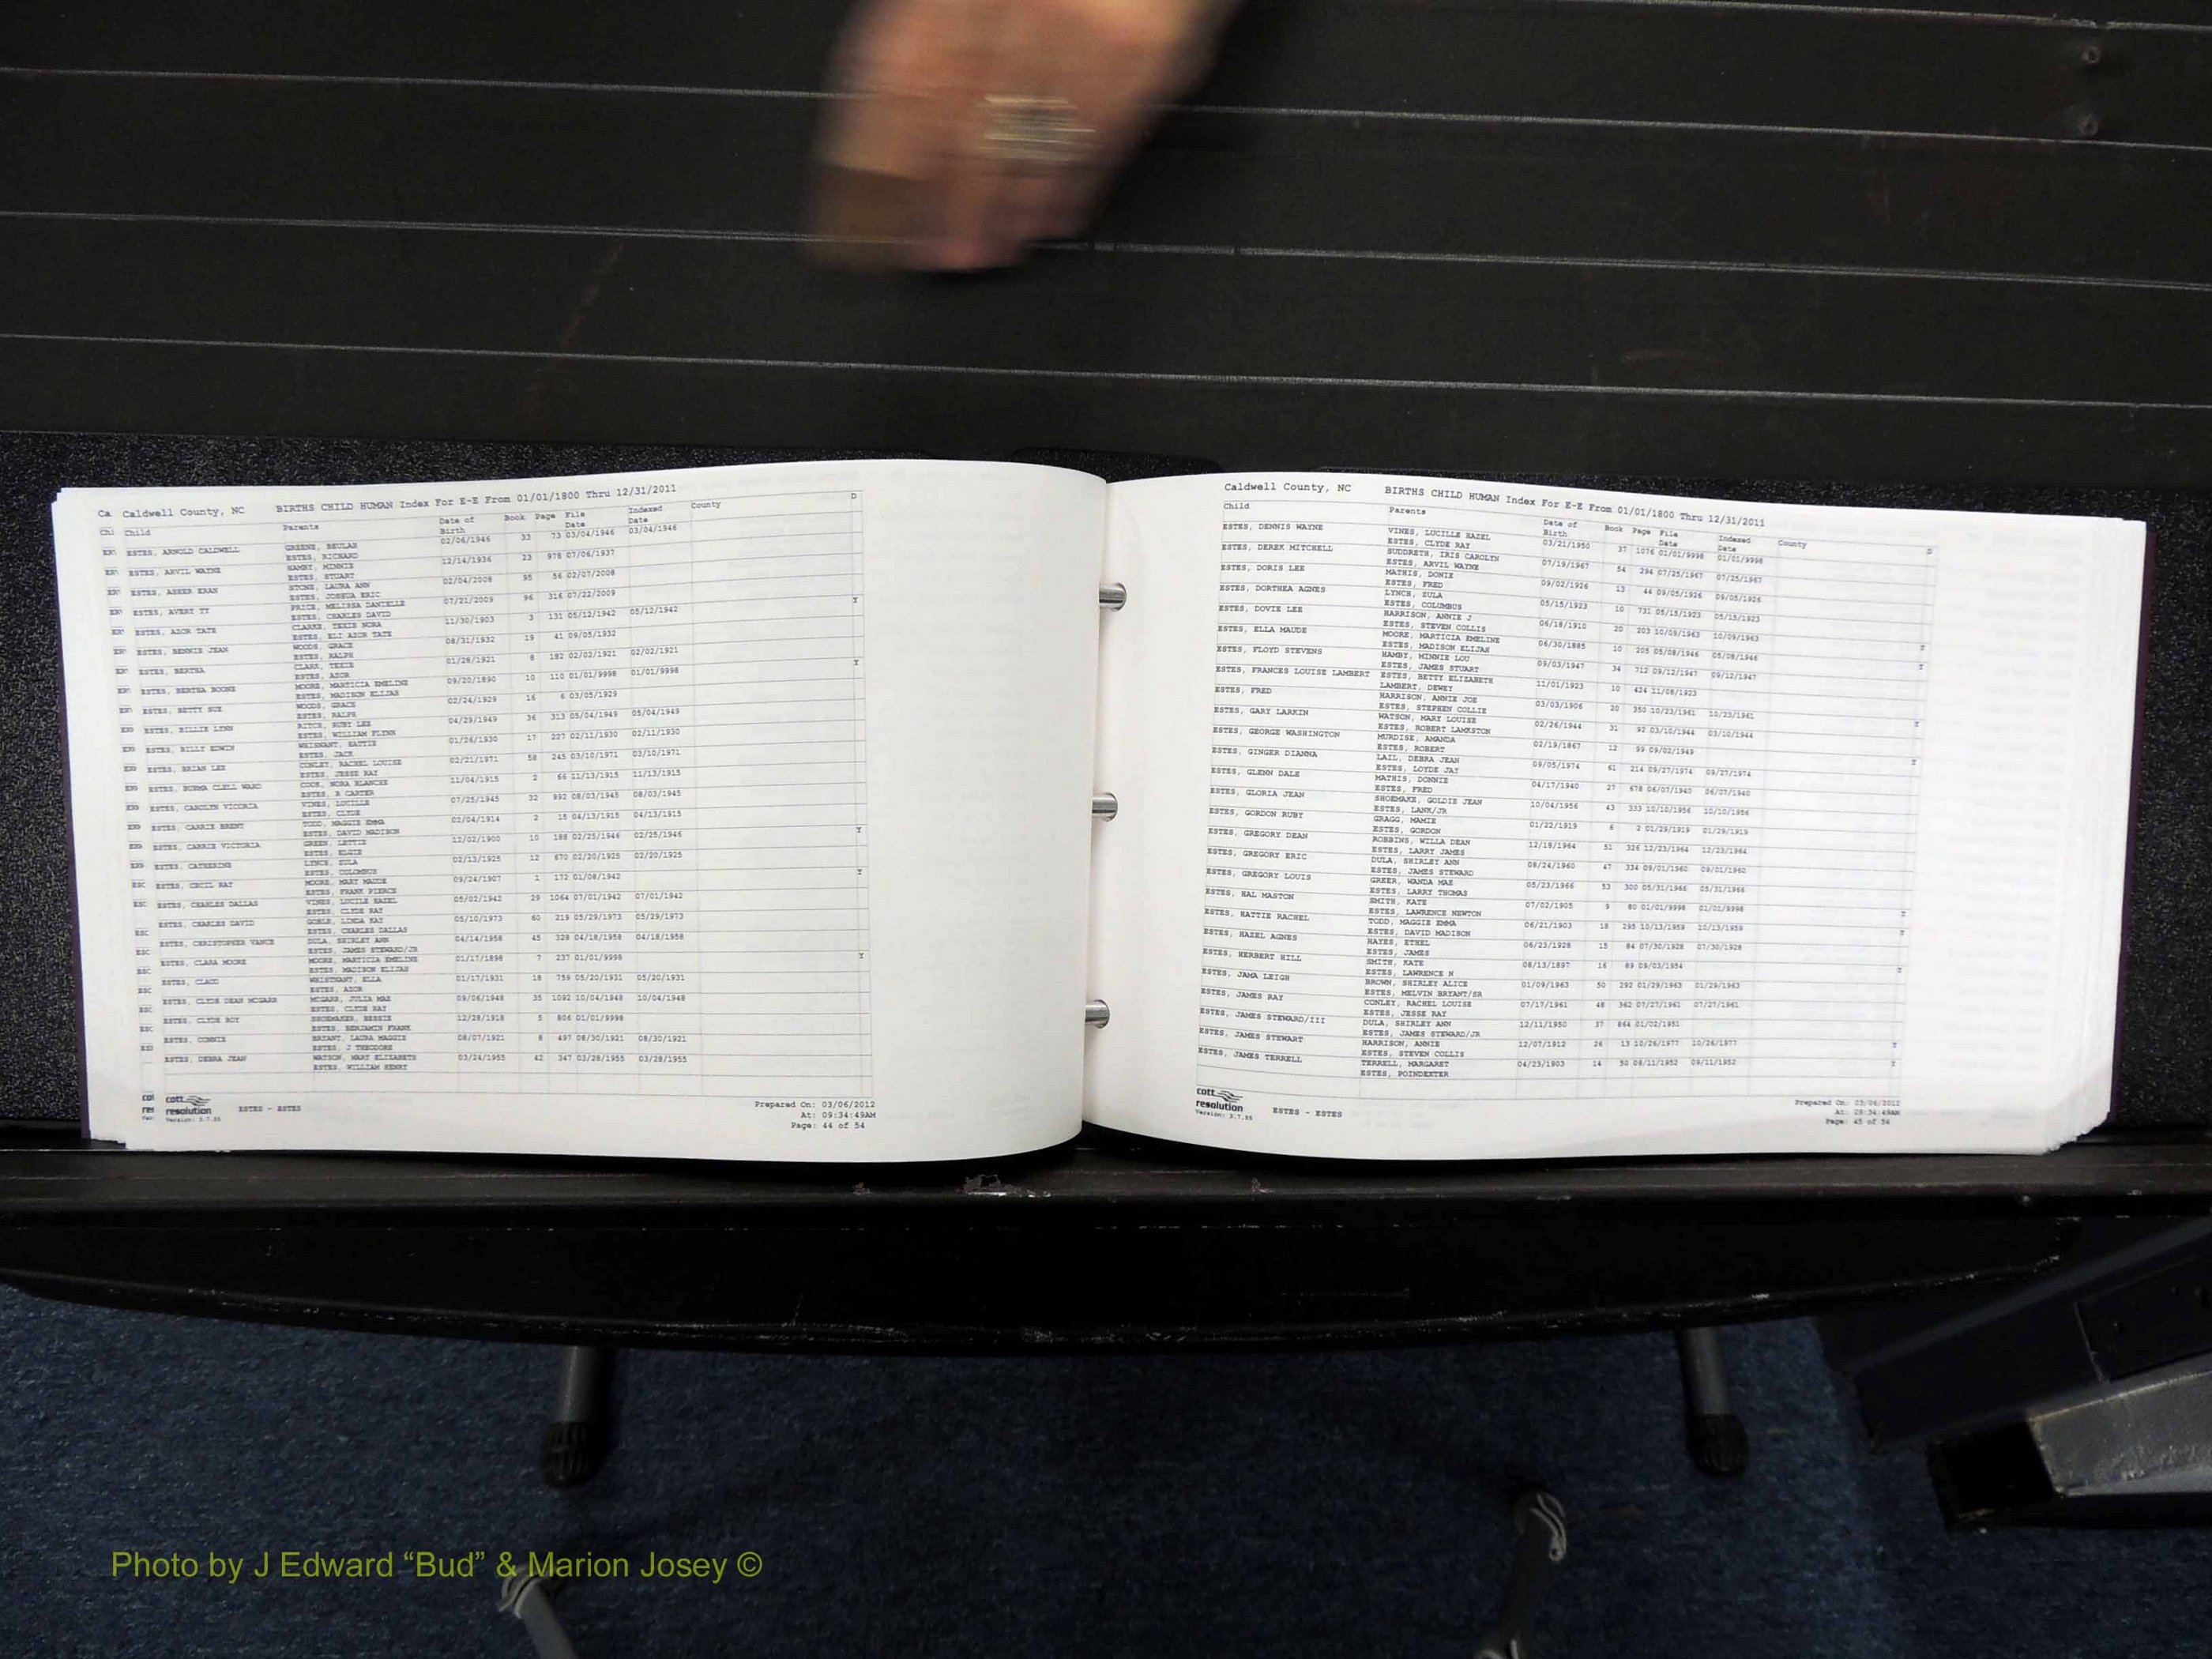 Ca Caldwell County, NC BIRTHS CHILD HUMAN Index For E-E From 01/01/1800 Thru 12/31/2011
Chi Child Parents Date of Birth Book Page File Date Indexed Date County D
ESTES, ARNOLD CALDWELL GREENE, BEULAH 02/06/1946 33 73 03/04/1946 03/04/1946
ESTES, RICHARD
ESTES, ARVIL WAYNE HAMBY, MINNIE 12/14/1936 23 978 07/06/1937
ESTES, STUART
ESTES, ASHER ERAN STONE, LAURA ANN 02/04/2008 95 56 02/07/2008
ESTES, JOSHUA ERIC
ESTES, AVERY TY PRICE, MELISSA DANIELLE 07/21/2009 96 316 07/22/2009
ESTES, CHARLES DAVID
ESTES, AZOR TATE CLARKE, TEXIE NORA 11/30/1903 3 131 05/12/1942 05/12/1942 Y
ESTES, ELI AZOR TATE
ESTES, BENNIE JEAN WOODS, GRACE 08/31/1932 19 41 09/05/1932
ESTES, RALPH
ESTES, BERTHA CLARK, TEXIE 01/28/1921 8 182 02/02/1921 02/02/1921
ESTES, AZOR
ESTES, BERTHA BOONE MOORE, MARTICIA EMELINE 09/20/1890 10 110 01/01/9998 01/01/9998 Y
ESTES, MADISON ELIJAH
ESTES, BETTY SUE WOODS, GRACE 02/24/1929 16 6 03/05/1929
ESTES, RALPH
ESTES, BILLIE LYNN RITCH, RUBY LEE 04/29/1949 36 313 05/04/1949 05/04/1949
ESTES, WILLIAM FLYNN
ESTES, BILLY EDWIN WHISNANT, HATTIE 01/26/1930 17 227 02/11/1930 02/11/1930
ESTES, JACK
ESTES, BRIAN LEE CONLEY, RACHEL LOUISE 02/21/1971 58 245 03/10/1971 03/10/1971
ESTES, JESSE RAY
ESTES, BURMA CLELL WARD COOK, NORA BLANCHE 11/04/1915 2 66 11/13/1915 11/13/1915
ESTES, R CARTER
ESTES, CAROLYN VICORIA VINES, LUCILLE 07/25/1945 32 992 08/03/1945 08/03/1945
ESTES, CLYDE
ESTES, CARRIE BRENT TODD, MAGGIE EMMA 02/04/1914 2 15 04/13/1915 04/13/1915
ESTES, DAVID MADISON
ESTES, CARRIE VICTORIA GREEN, LETTIE 12/02/1900 10 188 02/25/1946 02/25/1946 Y
ESTES, ELGIE
ESTES, CATHERINE LYNCH, ZULA 02/13/1925 12 670 02/20/1925 02/20/1925
ESTES, COLUMBUS
ESTES, CECIL RAY MOORE, MARY MAUDE 09/24/1907 1 172 01/08/1942 Y
ESTES, FRANK PIERCE
ESTES, CHARLES DALLAS VINES, LUCILE HAZEL 05/02/1942 29 1064 07/01/1942 07/01/1942
ESTES, CLYDE RAY
ESTES, CHARLES DAVID GOBLE, LINDA KAY 05/10/1973 60 219 05/29/1973 05/29/1973
ESTES, CHARLES DALLAS
ESTES, CHRISTOPHER VANCE DULA, SHIRLEY ANN 04/14/1958 45 328 04/18/1958 04/18/1958
ESTES, JAMES STEWARD/JR
ESTES, CLARA MOORE MOORE, MARTICIA EMELINE 01/17/1898 7 237 01/01/9998 Y
ESTES, MADISON ELIJAH
ESTES, CLAUD WHISTNANT, ELLA 01/17/1931 18 759 05/20/1931 05/20/1931
ESTES, AZOR
ESTES, CLYDE DEAN MCGARR MCGARR, JULIA MAE 09/06/1948 35 1092 10/04/1948 10/04/1948
ESTES, CLYDE RAY
ESTES, CLYDE ROY SHOEMAKER, BESSIE 12/28/1918 5 806 01/01/9998
ESTES, BENJAMIN FRANK
ESTES, CONNIE BRYANT, LAURA MAGGIE 08/07/1921 8 497 08/30/1921 08/30/1921
ESTES, J THEODORE
ESTES, DEBRA JEAN WATSON, MARY ELIZABETH 03/24/1955 42 347 03/28/1955 03/28/1955
ESTES, WILLIAM HENRY
cott
resolution ESTES - ESTES
Version: 3.7.55
Prepared On: 03/06/2012
At: 09:34:49AM
Page: 44 of 54
Caldwell County, NC BIRTHS CHILD HUMAN Index For E-E From 01/01/1800 Thru 12/31/2011
Child Parents Date of Birth Book Page File Date Indexed Date County D
ESTES, DENNIS WAYNE VINES, LUCILLE HAZEL 03/21/1950 37 1076 01/01/9998 01/01/9998
ESTES, CLYDE RAY
ESTES, DEREK MITCHELL SUDDRETH, IRIS CAROLYN 07/19/1967 54 294 07/25/1967 07/25/1967
ESTES, ARVIL WAYNE
ESTES, DORIS LEE MATHIS, DONIE 09/02/1926 13 44 09/05/1926 09/05/1926
ESTES, FRED
ESTES, DORTHEA AGNES LYNCH, ZULA 05/15/1923 10 731 05/15/1923 05/15/1923
ESTES, COLUMBUS
ESTES, DOVIE LEE HARRISON, ANNIE J 06/18/1910 20 203 10/09/1963 10/09/1963
ESTES, STEVEN COLLIS
ESTES, ELLA MAUDE MOORE, MARTICIA EMELINE 06/30/1885 10 205 05/08/1946 05/08/1946 Y
ESTES, MADISON ELIJAH
ESTES, FLOYD STEVENS HAMBY, MINNIE LOU 09/03/1947 34 712 09/12/1947 09/12/1947 Y
ESTES, JAMES STUART
ESTES, FRANCES LOUISE LAMBERT ESTES, BETTY ELIZABETH 11/01/1923 10 424 11/08/1923
LAMBERT, DEWEY
ESTES, FRED HARRISON, ANNIE JOE 03/03/1906 20 350 10/23/1961 10/23/1961 Y
ESTES, STEPHEN COLLIE
ESTES, GARY LARKIN WATSON, MARY LOUISE 02/26/1944 31 92 03/10/1944 03/10/1944
ESTES, ROBERT LAMKSTON
ESTES, GEORGE WASHINGTON MURDISE, AMANDA 02/19/1867 12 99 09/02/1949 Y
ESTES, ROBERT
ESTES, GINGER DIANNA LAIL, DEBRA JEAN 09/05/1974 61 214 09/27/1974 09/27/1974
ESTES, LOYDE JAY
ESTES, GLENN DALE MATHIS, DONNIE 04/17/1940 27 678 06/07/1940 06/07/1940
ESTES, FRED
ESTES, GLORIA JEAN SHOEMAKE, GOLDIE JEAN 10/04/1956 43 333 10/10/1956 10/10/1956
ESTES, LANK/JR
ESTES, GORDON RUBY GRAGG, MAMIE 01/22/1919 6 2 01/29/1919 01/29/1919
ESTES, GORDON
ESTES, GREGORY DEAN ROBBINS, WILLA DEAN 12/18/1964 51 326 12/23/1964 12/23/1964
ESTES, LARRY JAMES
ESTES, GREGORY ERIC DULA, SHIRLEY ANN 08/24/1960 47 334 09/01/1960 09/01/1960
ESTES, JAMES STEWARD
ESTES, GREGORY LOUIS GREER, WANDA MAE 05/23/1966 53 300 05/31/1966 05/31/1966
ESTES, LARRY THOMAS
ESTES, HAL MASTON SMITH, KATE 07/02/1905 9 80 01/01/9998 01/01/9998 Y
ESTES, LAWRENCE NEWTON
ESTES, HATTIE RACHEL TODD, MAGGIE EMMA 06/21/1903 18 295 10/13/1959 10/13/1959 Y
ESTES, DAVID MADISON
ESTES, HAZEL AGNES HAYES, ETHEL 06/23/1928 15 84 07/30/1928 07/30/1928
ESTES, JAMES
ESTES, HERBERT HILL SMITH, KATE 08/13/1897 16 89 09/03/1954 Y
ESTES, LAWRENCE N
ESTES, JAMA LEIGH BROWN, SHIRLEY ALICE 01/09/1963 50 292 01/29/1963 01/29/1963
ESTES, MELVIN BRYANT/SR
ESTES, JAMES RAY CONLEY, RACHEL LOUISE 07/17/1961 48 362 07/27/1961 07/27/1961
ESTES, JESSE RAY
ESTES, JAMES STEWARD/III DULA, SHIRLEY ANN 12/11/1950 37 864 01/02/1951
ESTES, JAMES STEWARD/JR
ESTES, JAMES STEWART HARRISON, ANNIE 12/07/1912 26 13 10/26/1977 10/26/1977 Y
ESTES, STEVEN COLLIS
ESTES, JAMES TERRELL TERRELL, MARGARET 04/23/1903 14 50 09/11/1952 09/11/1952 Y
ESTES, POINDEXTER
cott
resolution ESTES - ESTES
Version: 3.7.55
Prepared On: 03/06/2012
At: 09:34:49AM
Page: 45 of 54
Photo by J Edward “Bud” & Marion Josey ©